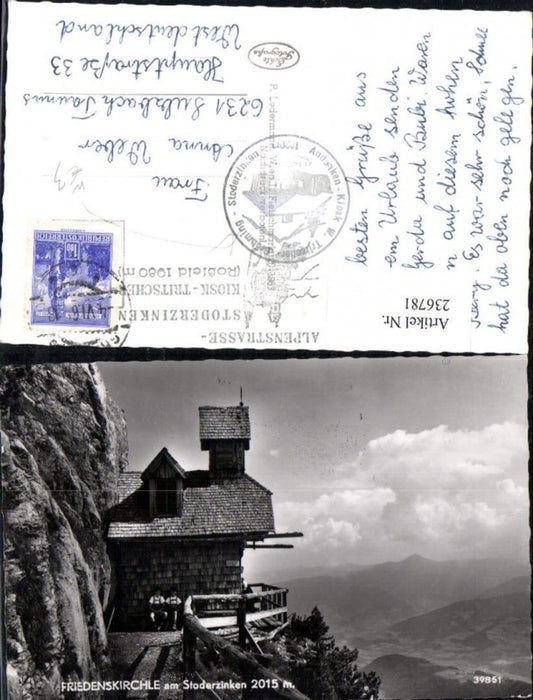 besten Grüße aus
em Urlaub senden
Gerda und Pauli. Waren
n auf diesem hohen
Es war sehr schön, Schnee
hat da oben noch gelegen.
Frau
Anna Weber
6231 Sulzbach Taunus
Hauptstraße 33
Westdeutschland
Echte Fotografie
REPUBLIK ÖSTERREICH
Stoderzinken
Andenken-Kiosk
ALPENSTRASSE-
STODERZINKEN
KIOSK-TRITSCHER
(Rosfeld 1980 m)
Artikel Nr.
236781
FRIEDENSKIRCHLE am Stoderzinken 2015 m.
39861